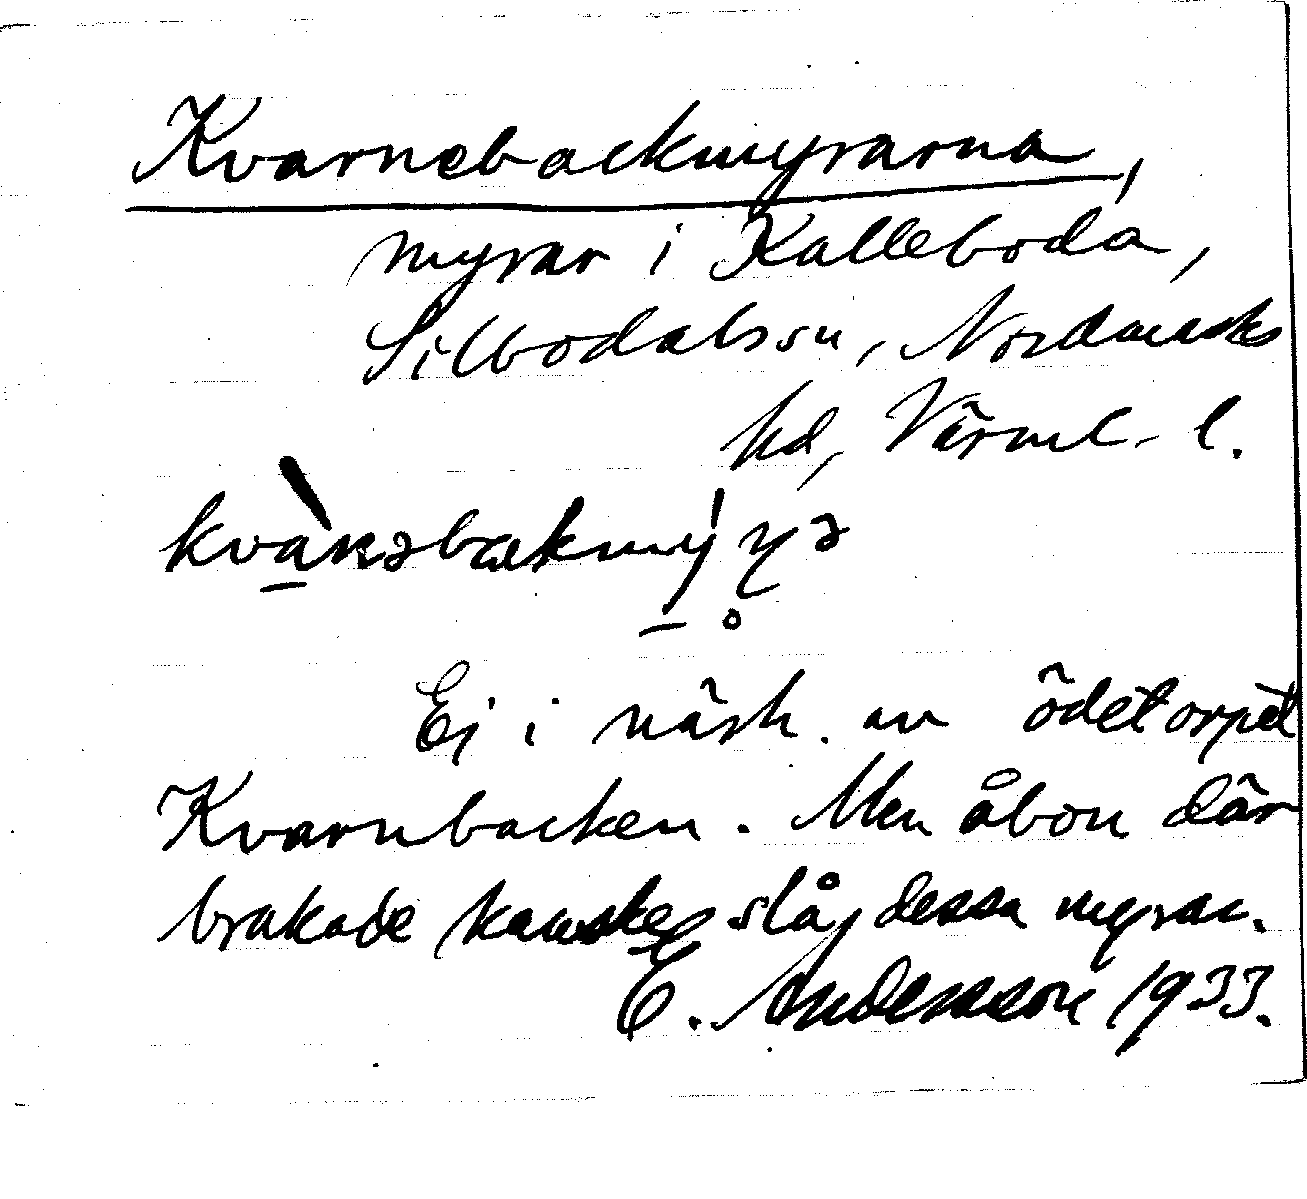 Kvarnebackmyrarna,
myrar i Kalleboda,
Silbodalssn, Nordmarks
hd, Värml. l.
Ej i närh. av ödetorpet
Kvarnbacken. Men åbon där
brukade kanske slå dessa myrar.
E. Andersson 1933.